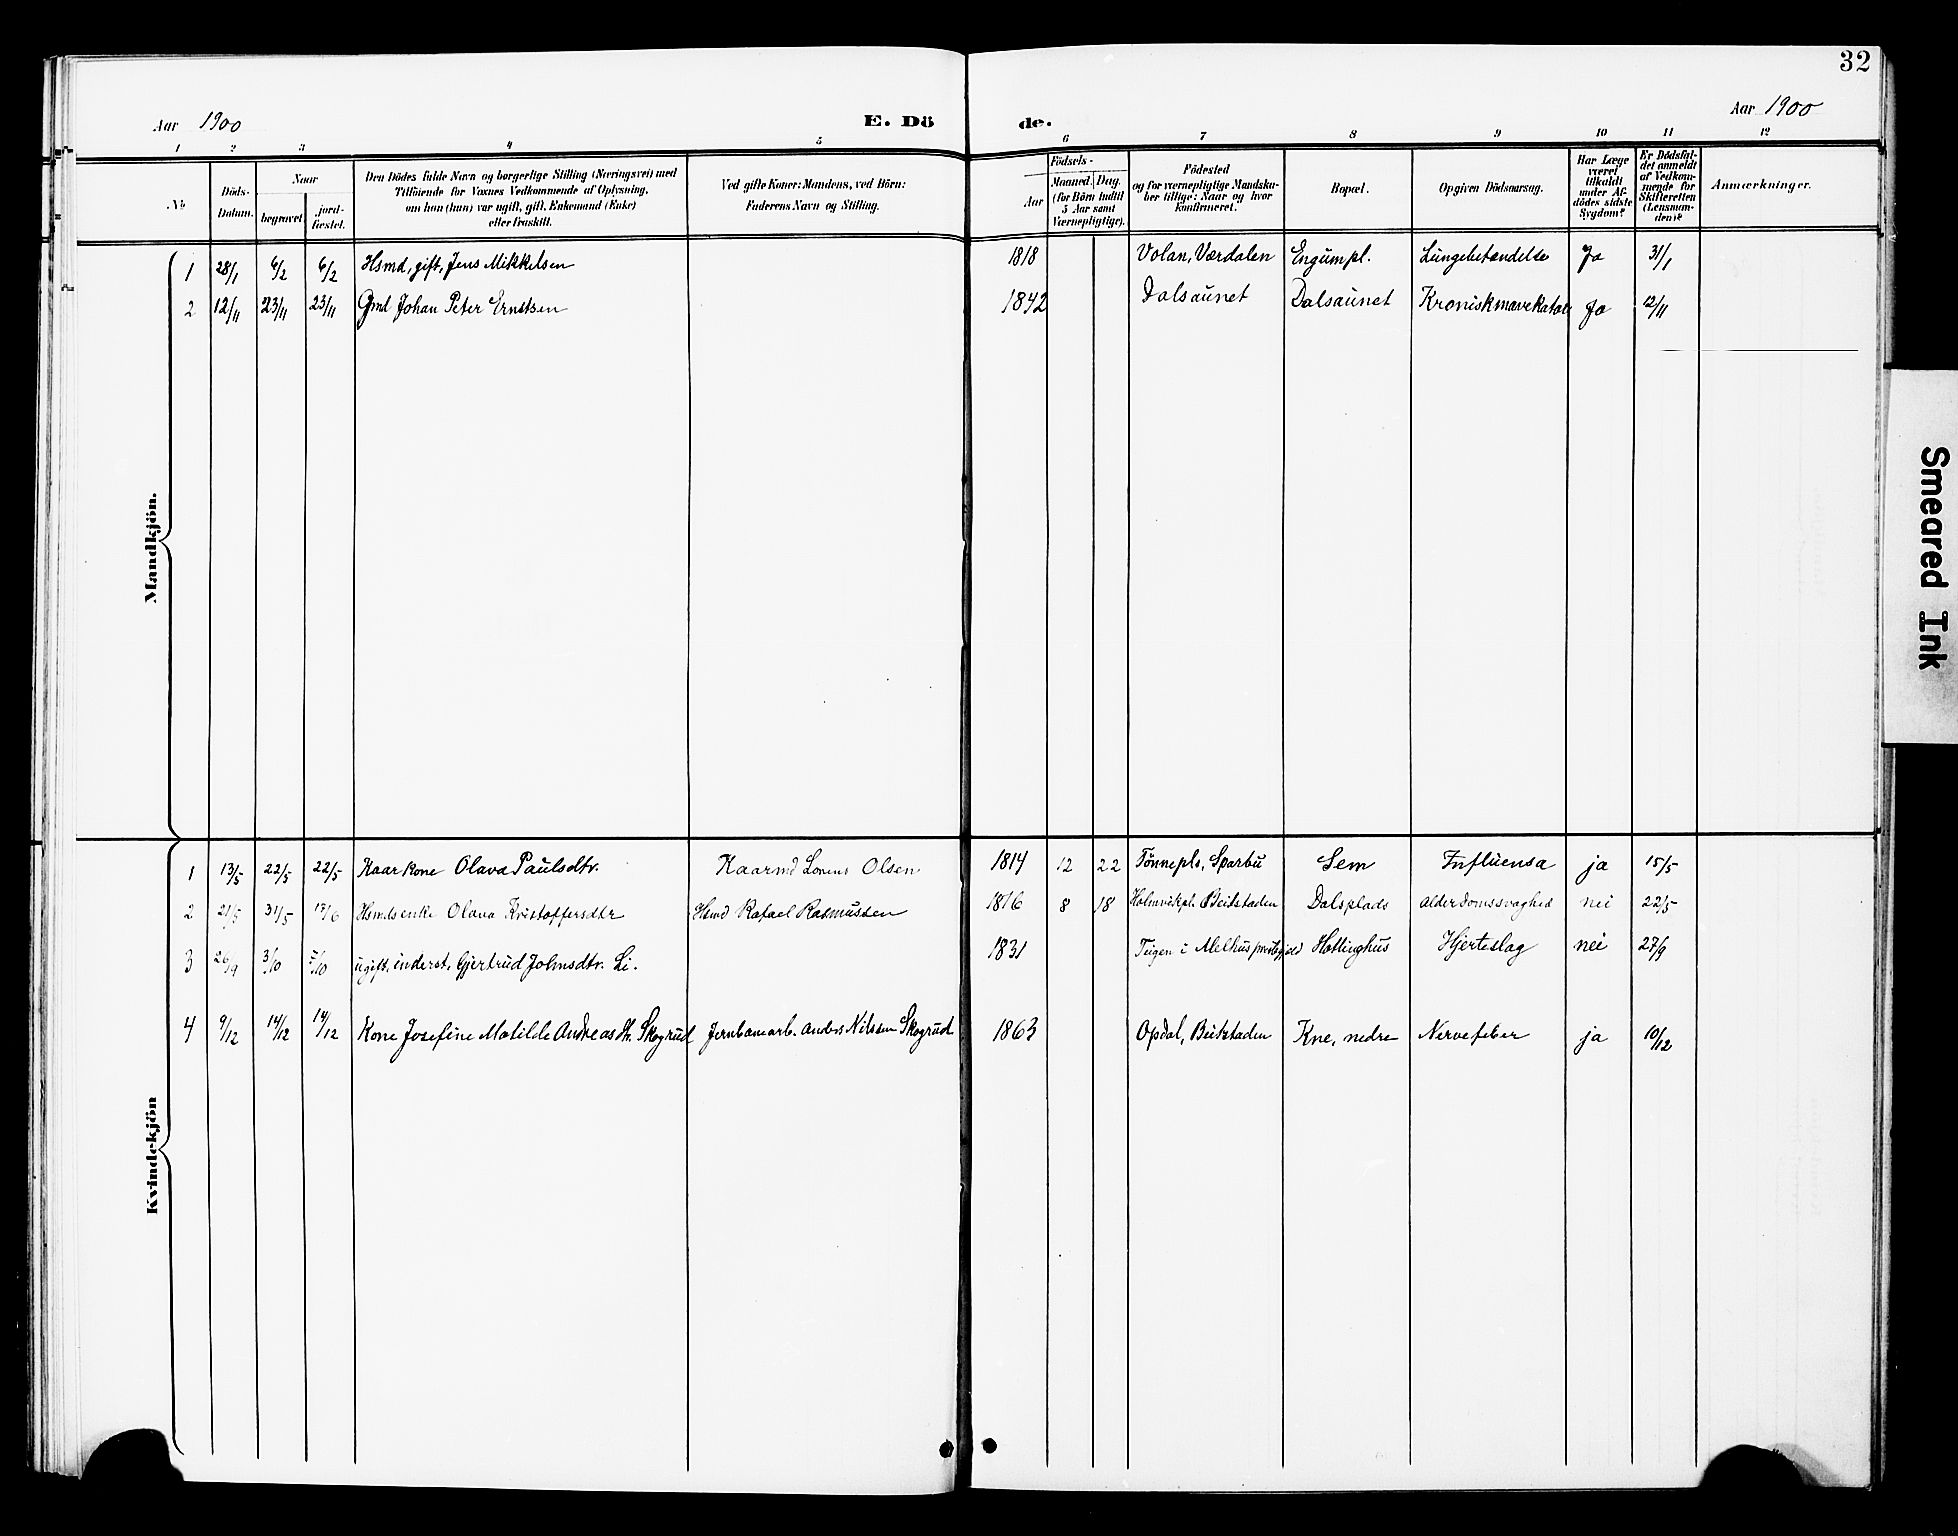 32
Aar 1900
E. Dö de.
Aar 1900
1 2 3 4 5 6 7 8 9 10 11 12
No.
Döds-
Datum.
Naar
begravet.
jord-
fæstet.
Den Dödes fulde Navn og borgerlige Stilling (Næringsvei) med
Tilföiende for Voxnes Vedkommende af Oplysning,
om han (hun) var ugift, gift, Enkemand (Enke)
eller fraskilt.
Ved gifte Koner: Mandens, ved Börn:
Faderens Navn og Stilling.
Födsels-
Aar
Maaned. Dag.
(for Börn indtil
5 Aar samt
Værnepligtige).
Födested
og for værnepligtige Mandska-
ber tillige: Naar og hvor
konfirmeret.
Bopæl.
Opgiven Dödsaarsag.
Har Læge
været
tilkaldt
under Af-
dödes sidste
Sygdom?
Er Dödsfal-
det anmeldt
af Vedkom-
mende for
Skifteretten
(Lensman-
den)?
Anmærkninger.
Mandkjön.
1 28/1 6/2 6/2 Hsmd, gift, Jens Mikkelsen 1818 Volan, Værdalen Engumpl. Lungebetændelse Ja 31/1
2 12/11 23/11 23/11 Gmd Johan Peter Ernstsen 1842 Dalsaunet Dalsaunet Kroniskmavekatar Ja 12/11
Kvindekjön
1 13/5 22/5 22/5 Kaarkone Olava Paulsdtr. Kaarmd Lorens Olsen 1814 12 22 Tønnepls, Sparbu Sem Influensa ja 15/5
2 21/5 31/5 13/6 Hsmdsenke Olava Kristoffersdtr Hsmd Rafael Rasmussen 1816 8 18 Holmvikpl. Beitstaden Dalsplads alderdomssvaghed nei 22/5
3 26/9 3/10 5/10 ugift, inderst, Gjertrud Johnsdtr. Li. 1831 Teigen i Melhus prestegjeld Hottinghus Hjerteslag nei 27/9
4 9/12 14/12 14/12 Kone Josefine Matilde Andreasdtr. Skogrud Jernbanearb. Anders Nilssen Skogrud 1863 Opdal, Beitstaden Kne, nedre Nervefeber ja 10/12
Smeared Ink